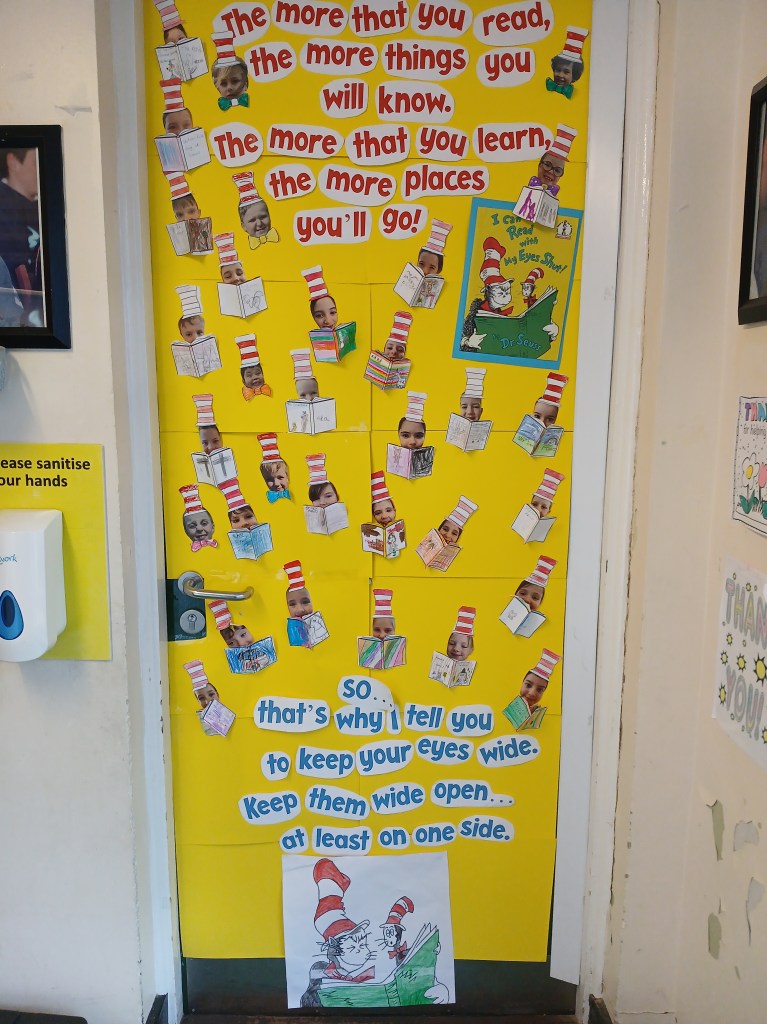 The more that you read,
the more things you
will know.
The more that you learn,
the more places
you'll go!
I can
Read
with
My Eyes Shut!
Dr Seuss
ease sanitise
our hands
work
SO...
that's why I tell you
to keep your eyes wide.
Keep them wide open...
at least on one side.
for helping
THANK
YOU!